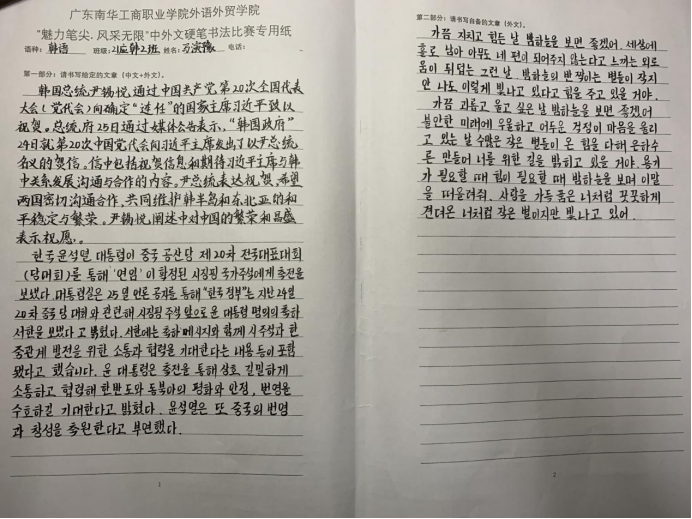 广东南华工商职业学院外语外贸学院
"魅力笔尖、风采无限"中外文硬笔书法比赛专用纸
语种: 韩语 班级: 21应韩2班 姓名: 电话:
第一部分: 请书写给定的文章 (中文+外文)。
韩国总统尹锡悦,通过中国共产党第20次全国代表
大会(党代会)向确定"连任"的国家主席习近平致以
祝贺。总统府25日通过媒体公告表示,"韩国政府"
24日就第20次中国党代会向习近平主席发出了以尹总统
名义的贺信。信中包括祝贺信息和期待习近平主席与韩
中关系发展沟通与合作的内容。尹总统表达祝贺,希望
两国密切沟通合作,共同维护韩半岛和东北亚的和
平稳定与繁荣。尹锡悦阐述中对中国的繁荣和昌盛
表示祝愿。
한국윤석열 대통령이 중국 공산당 제20차 전국대표대회
(당대회)를 통해 '연임'이 확정된 시진핑 국가주석에게 축전을
보냈다. 대통령실은 25일 언론 공지를 통해 "한국 정부"는 지난 24일
20차 중국 당 대회와 관련해 시진핑 주석 앞으로 윤 대통령 명의의 축하
서한을 보냈다고 밝혔다. 서한에는 축하 메시지와 함께 시 주석과 한
중관계 발전을 위한 소통과 협력을 기대한다는 내용 등이 포함
됐다고 했습니다. 윤 대통령은 축전을 통해 상호 긴밀하게
소통하고 협력해 한반도와 동북아의 평화와 안정, 번영을
수호하길 기대한다고 밝혔다. 윤석열은 또 중국의 번영
과 창성을 축원한다고 부연했다.
1
第二部分: 请书写自备的文章 (外文)。
가끔 지치고 힘든 날 밤하늘을 보면 좋겠어. 세상에
홀로 남아 아무도 네 편이 되어주지 않는다고 느끼는 외로
움이 뒤덮는 그런 날, 밤하늘의 반짝이는 별들이 작지
만 나도 이렇게 빛나고 있다고 힘을 주고 있을 거야.
가끔 괴롭고 울고 싶은 날 밤하늘을 보면 좋겠어
불안한 미래에 우울하고 어두운 걱정이 마음을 울리
고 있는 날 수많은 작은 별들이 온 힘을 다해 은하수
를 만들어 너를 위한 길을 밝히고 있을 거야. 용기
가 필요할 때 힘이 필요할 때 밤하늘을 보며 이말
을 떠올려줘. 사람들 가득 품은 너처럼 꿋꿋하게
견뎌온 너처럼 작은 별이지만 빛나고 있어.
2